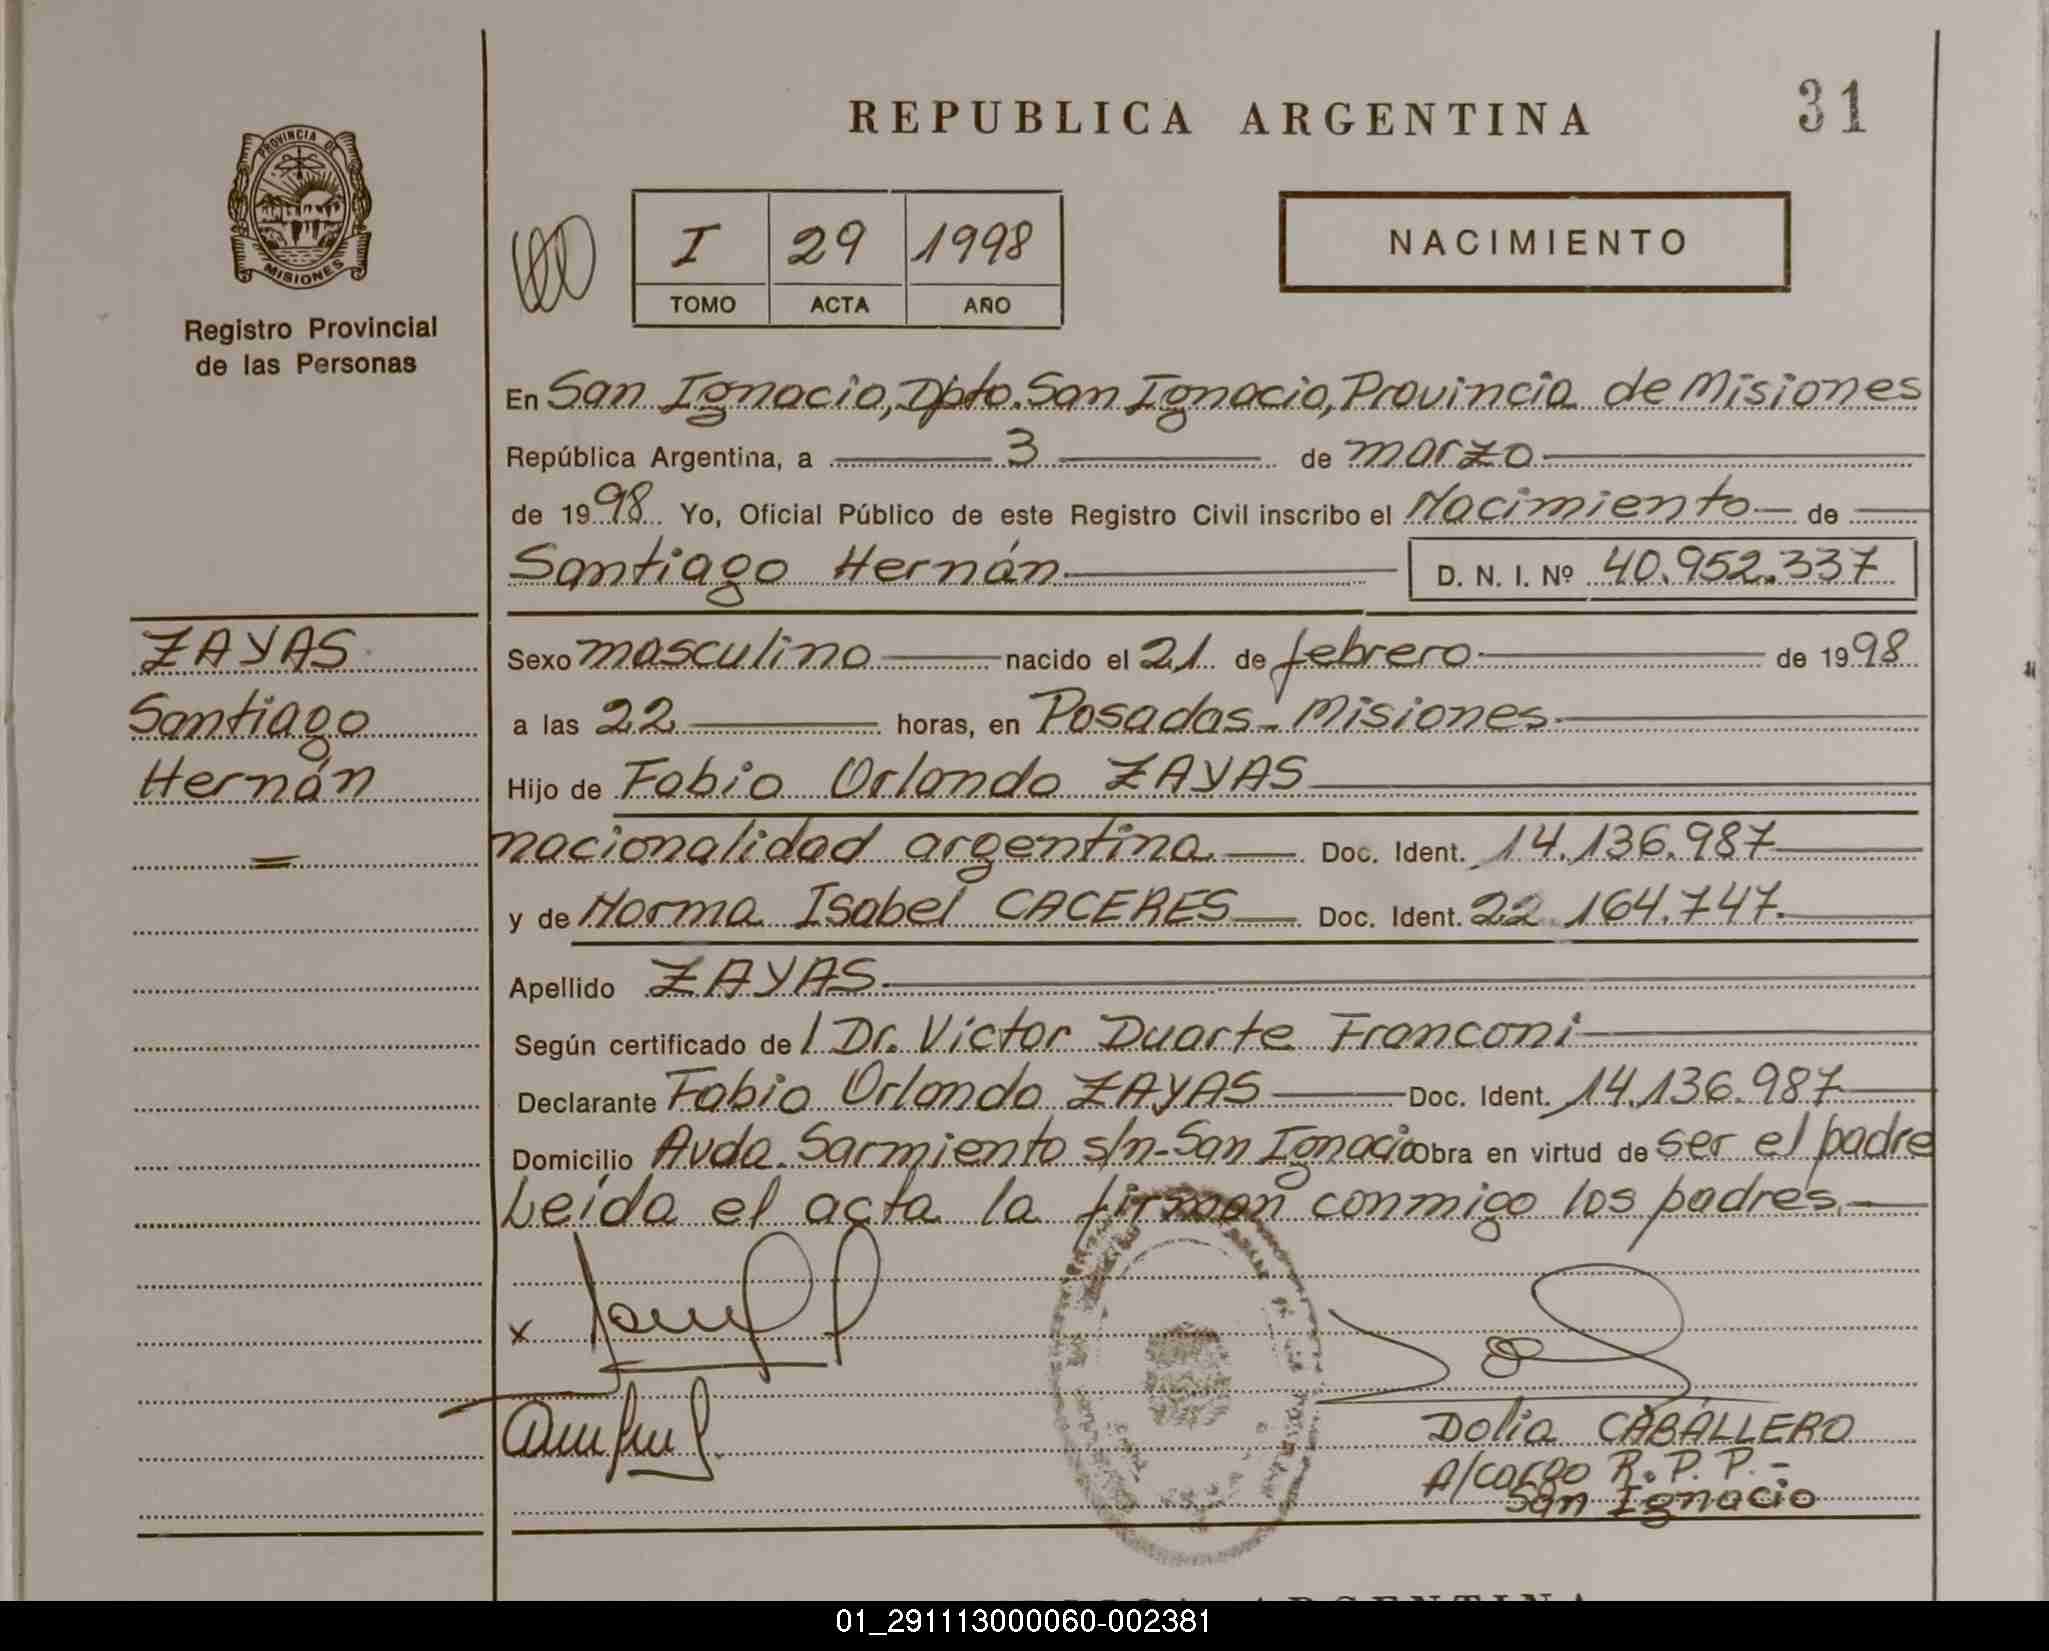 REPUBLICA ARGENTINA
31
PROVINCIA DE
MISIONES
Registro Provincial
de las Personas
I 29 1998
TOMO ACTA AÑO
NACIMIENTO
En San Ignacio, Dpto. San Ignacio, Provincia de Misiones
República Argentina, a 3 de marzo
de 1998 Yo, Oficial Público de este Registro Civil inscribo el Nacimiento de
Santiago Hernán D. N. I. Nº 40.952.337
ZAYAS
Santiago
Hernán
Sexo masculino nacido el 21 de febrero de 1998
a las 22 horas, en Posadas - Misiones
Hijo de Fabio Orlando ZAYAS
nacionalidad argentina. Doc. Ident. 14.136.987
y de Norma Isabel CACERES Doc. Ident. 22.164.747.
Apellido ZAYAS
Según certificado de l Dr. Víctor Duarte Franconi
Declarante Fabio Orlando ZAYAS Doc. Ident. 14.136.987
Domicilio Avda. Sarmiento s/n - San Ignacio obra en virtud de ser el padre
Leída el acta la firman conmigo los padres.
x
Dolia CABALLERO
A/cargo R.P.P. -
San Ignacio
REPUBLICA ARGENTINA
01_291113000060-002381